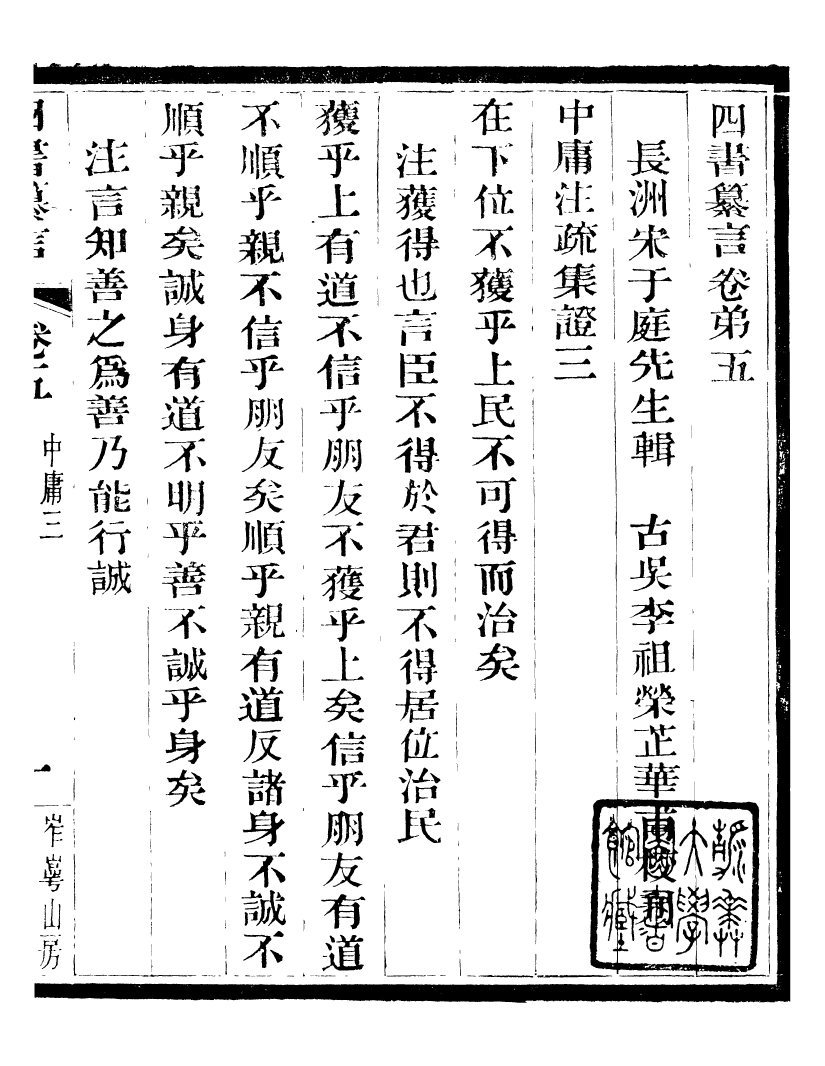 四書纂言卷弟五
長洲宋于庭先生輯　古吳李祖榮芷華甫校
中庸注疏集證三
在下位不獲乎上民不可得而治矣
注獲得也言臣不得於君則不得居位治民
獲乎上有道不信乎朋友不獲乎上矣信乎朋友有道
不順乎親不信乎朋友矣順乎親有道反諸身不誠不
順乎親矣誠身有道不明乎善不誠乎身矣
注言知善之爲善乃能行誠
四書纂言　卷五　中庸三　一　岝崿山房